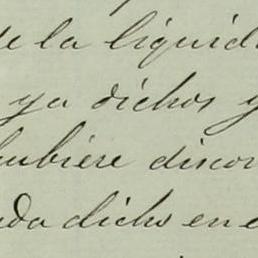 de la liquid
ya dichos y
hubiere discor
ada dicho en e